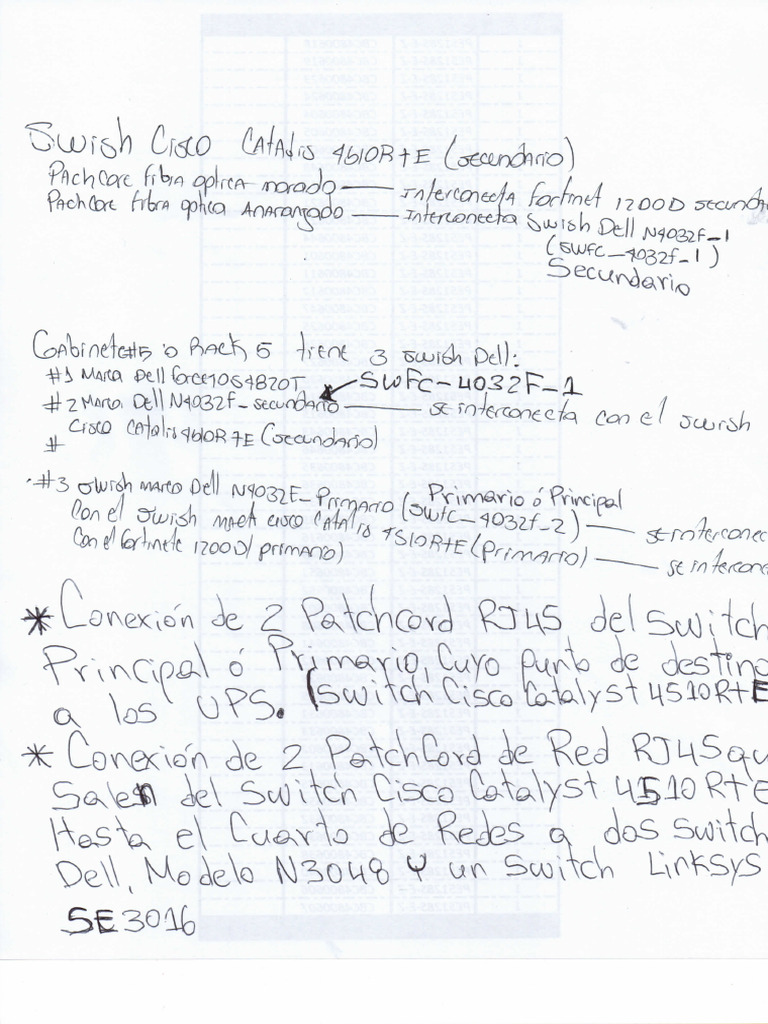 Swish Cisco Catalis 4510R+E (secundario)
Pachcore fibra optica morado — Interconecta Fortinet 1200D secunda
Pachcore fibra optica Anaranjado — Interconecta Swish Dell N4032f-1
(swfc-4032f-1)
Secundario
Gabinete#5 o Rack 5 tiene 3 swish Dell:
#1 Marca Dell force10S4820T SWFC-4032F-1
#2 Marca Dell N4032f-secundario — se interconecta con el swish
Cisco Catalis 4510R+E (secundario)
#
#3 swish marca Dell N4032F-Primario (Primario ó Principal
Con el swish marca cisco Catalis (swfc-4032f-2) — se interconec
Con el fortinete 1200D/primario) 4510R+E (Primario) — se intercone
* Conexión de 2 Patchcord RJ45 del Switch
Principal ó Primario, Cuyo punto de destino
a los UPS. (Switch Cisco Catalyst 4510R+E
* Conexión de 2 PatchCord de Red RJ45 qu
Salen del Switch Cisco Catalyst 4510R+E
Hasta el Cuarto de Redes a dos switch
Dell, Modelo N3048 Y un Switch Linksys
SE3016